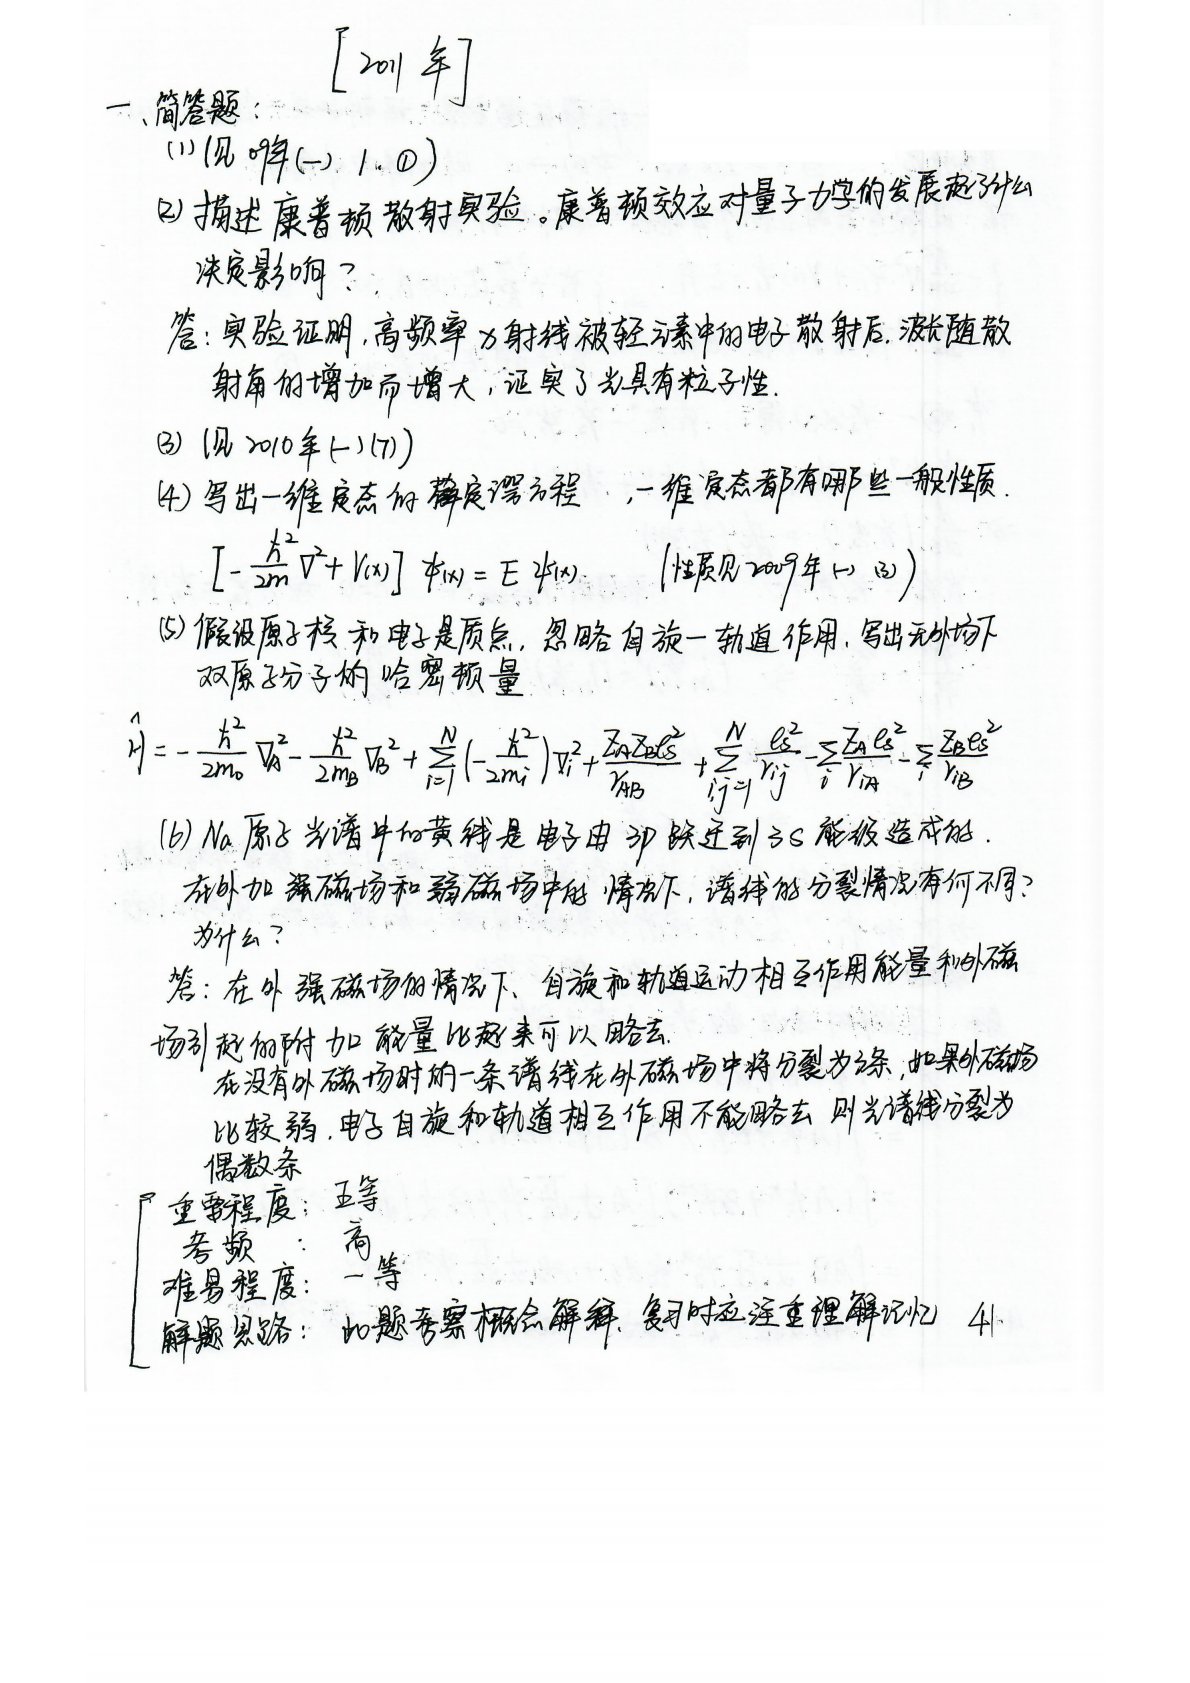 [2011年]
一、简答题：
(1)(见09年(一) 1.①)
(2) 描述康普顿散射实验。康普顿效应对量子力学的发展起了什么
决定影响？
答：实验证明,高频率X射线被轻元素中的电子散射后,波长随散
射角的增加而增大,证实了光具有粒子性.
(3) (见2010年(一)(7))
(4) 写出一维定态的薛定谔方程 ,一维定态都有哪些一般性质.
[-ħ²/2m ∇²+V(x)] ψ(x) = E ψ(x). (性质见2009年(一) (3))
(5) 假设原子核和电子是质点,忽略自旋一轨道作用,写出无外场下
双原子分子的哈密顿量
Ĥ = -ħ²/2m₀ ∇A² - ħ²/2mB ∇B² + Σ(i=1→N)(-ħ²/2mi)∇i² + ZAZBes²/rAB + Σ(i,j=1→N) es²/rij - Σi ZAes²/riA - Σi ZBes²/riB
(6) Na原子光谱中的黄线是电子由3P跃迁到3S能级造成的.
在外加强磁场和弱磁场中的情况下,谱线的分裂情况有何不同?
为什么?
答：在外强磁场的情况下、自旋和轨道运动相互作用能量和外磁
场引起的附加能量比起来可以略去.
在没有外磁场时的一条谱线在外磁场中将分裂为3条,如果外磁场
比较弱,电子自旋和轨道相互作用不能略去 则光谱线分裂为
偶数条
重要程度： 五等
考频 ： 高
难易程度： 一等
解题思路： 此题考察概念解释、复习时应注重理解记忆 41.